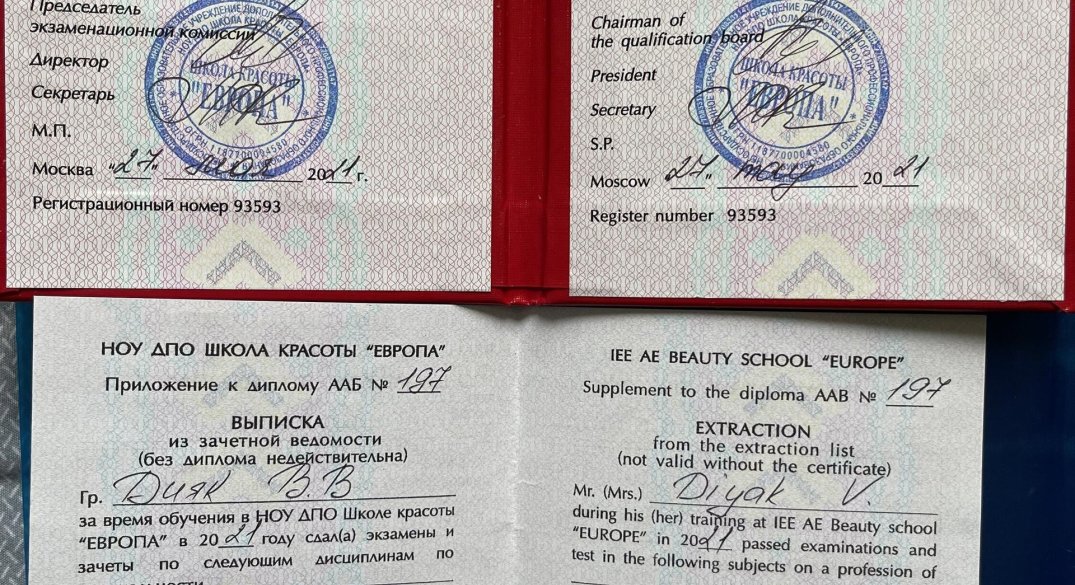 Председатель
экзаменационной комиссии
Директор
Секретарь
М.П.
Москва "27" мая 2021 г.
Регистрационный номер 93593
Chairman of
the qualification board
President
Secretary
S.P.
Moscow "27" may 20 21
Register number 93593
ШКОЛА КРАСОТЫ
"ЕВРОПА"
ШКОЛА КРАСОТЫ
"ЕВРОПА"
НОУ ДПО ШКОЛА КРАСОТЫ "ЕВРОПА"
Приложение к диплому ААБ № 197
ВЫПИСКА
из зачетной ведомости
(без диплома недействительна)
Гр. Дияк В.В
за время обучения в НОУ ДПО Школе красоты
"ЕВРОПА" в 2021 году сдал(а) экзамены и
зачеты по следующим дисциплинам по
IEE AE BEAUTY SCHOOL "EUROPE"
Supplement to the diploma AAB № 197
EXTRACTION
from the extraction list
(not valid without the certificate)
Mr. (Mrs.) Diyak V.
during his (her) training at IEE AE Beauty school
"EUROPE" in 2021 passed examinations and
test in the following subjects on a profession of